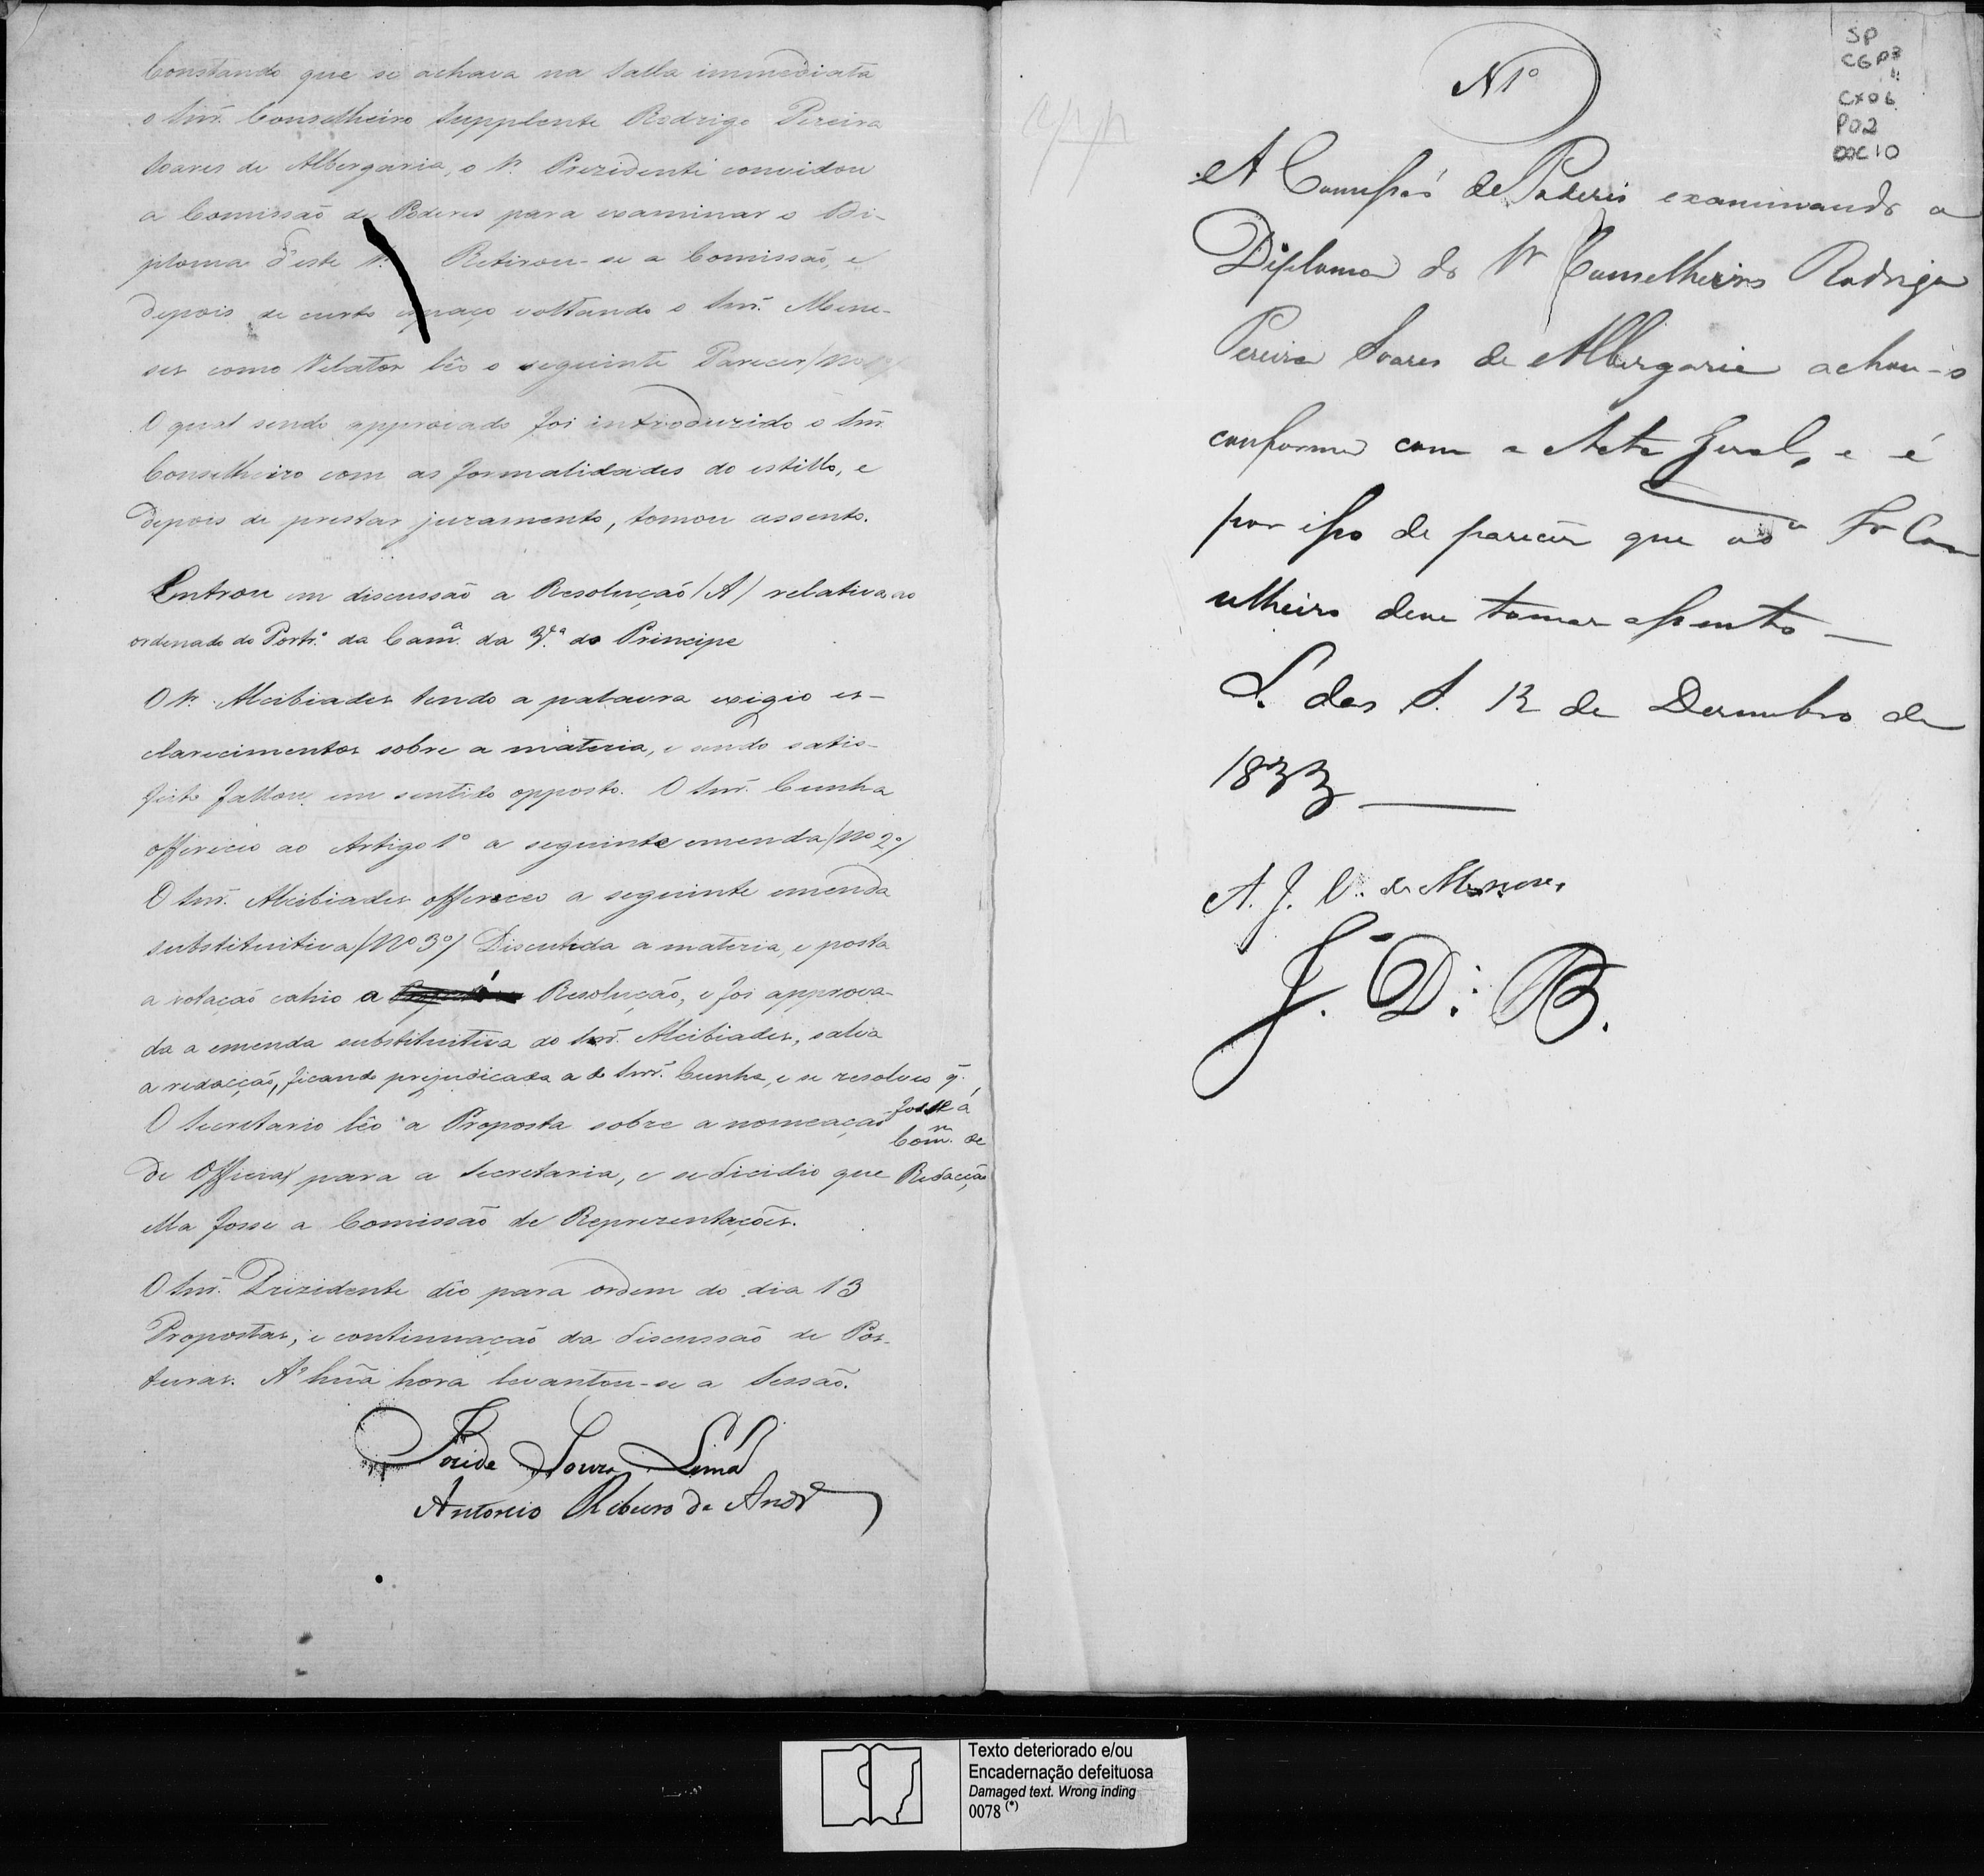 Constando que se achava na Salla immediata
o Snr. Conselheiro Supplente Rodrigo Pereira
Soares de Albergaria, o Sr. Prezidente convidou
a Comissão de Poderes para examinar o Di-
ploma d'este Sr. Retirou-se a Comissão, e
depois de curto espaço voltando o Snr. Mene-
ses como Relator lêo o seguinte Parecer (Nº 1º)
O qual sendo approvado foi introduzido o Snr.
Conselheiro com as formalidades do estillo, e
depois de prestar juramento, tomou assento.
Entrou em discussão a Resolução (A) relativa ao
ordenado do Portr.º da Camª. da Vª. do Principe
O Sr. Alcibiades tendo a palavra exigio es-
clarecimentos sobre a materia, e sendo satis-
feito fallou em sentido opposto. O Snr. Cunha
offereceo ao Artigo 1º a seguinte emenda (Nº 2º)
O Snr. Alcibiades offereceo a seguinte emenda
substituitiva (Nº 3º) Discutida a materia, e posta
a votação cahio a Resolução, e foi approva-
da a emenda substituitiva do Snr. Alcibiades, salva
a redacção, ficando prejudicada a do Snr. Cunha, e se resolveo q.
fosse á
Comm. de
Redacção
O Secretario lêo a Proposta sobre a nomeação
de Official para a Secretaria, e se dicidio que
ella fosse a Comissão de Reprezentações.
O Snr. Prezidente dêo para ordem do dia 13
Propostas, e continuação da discussão de Pos-
turas. Á's hũa hora levantou-se a Sessão.
José de Souza Lima
Antonio Ribeiro de Andr.
Nº 1º
A Comissão de Poderes examinando o
Diploma do Sr Conselheiro Rodrigo
Pereira Soares de Albergaria achou-o
conforme com a Acta Geral, e é
por isso de parecer que o Sr Con
selheiro deve tomar assento —
S. das S. 12 de Dezembro de
1833 —
A. J. de Menezes
J. D. B.
SP
CGP3
11
CX06
P02
DOC10
Texto deteriorado e/ou
Encadernação defeituosa
Damaged text. Wrong inding
0078 (*)